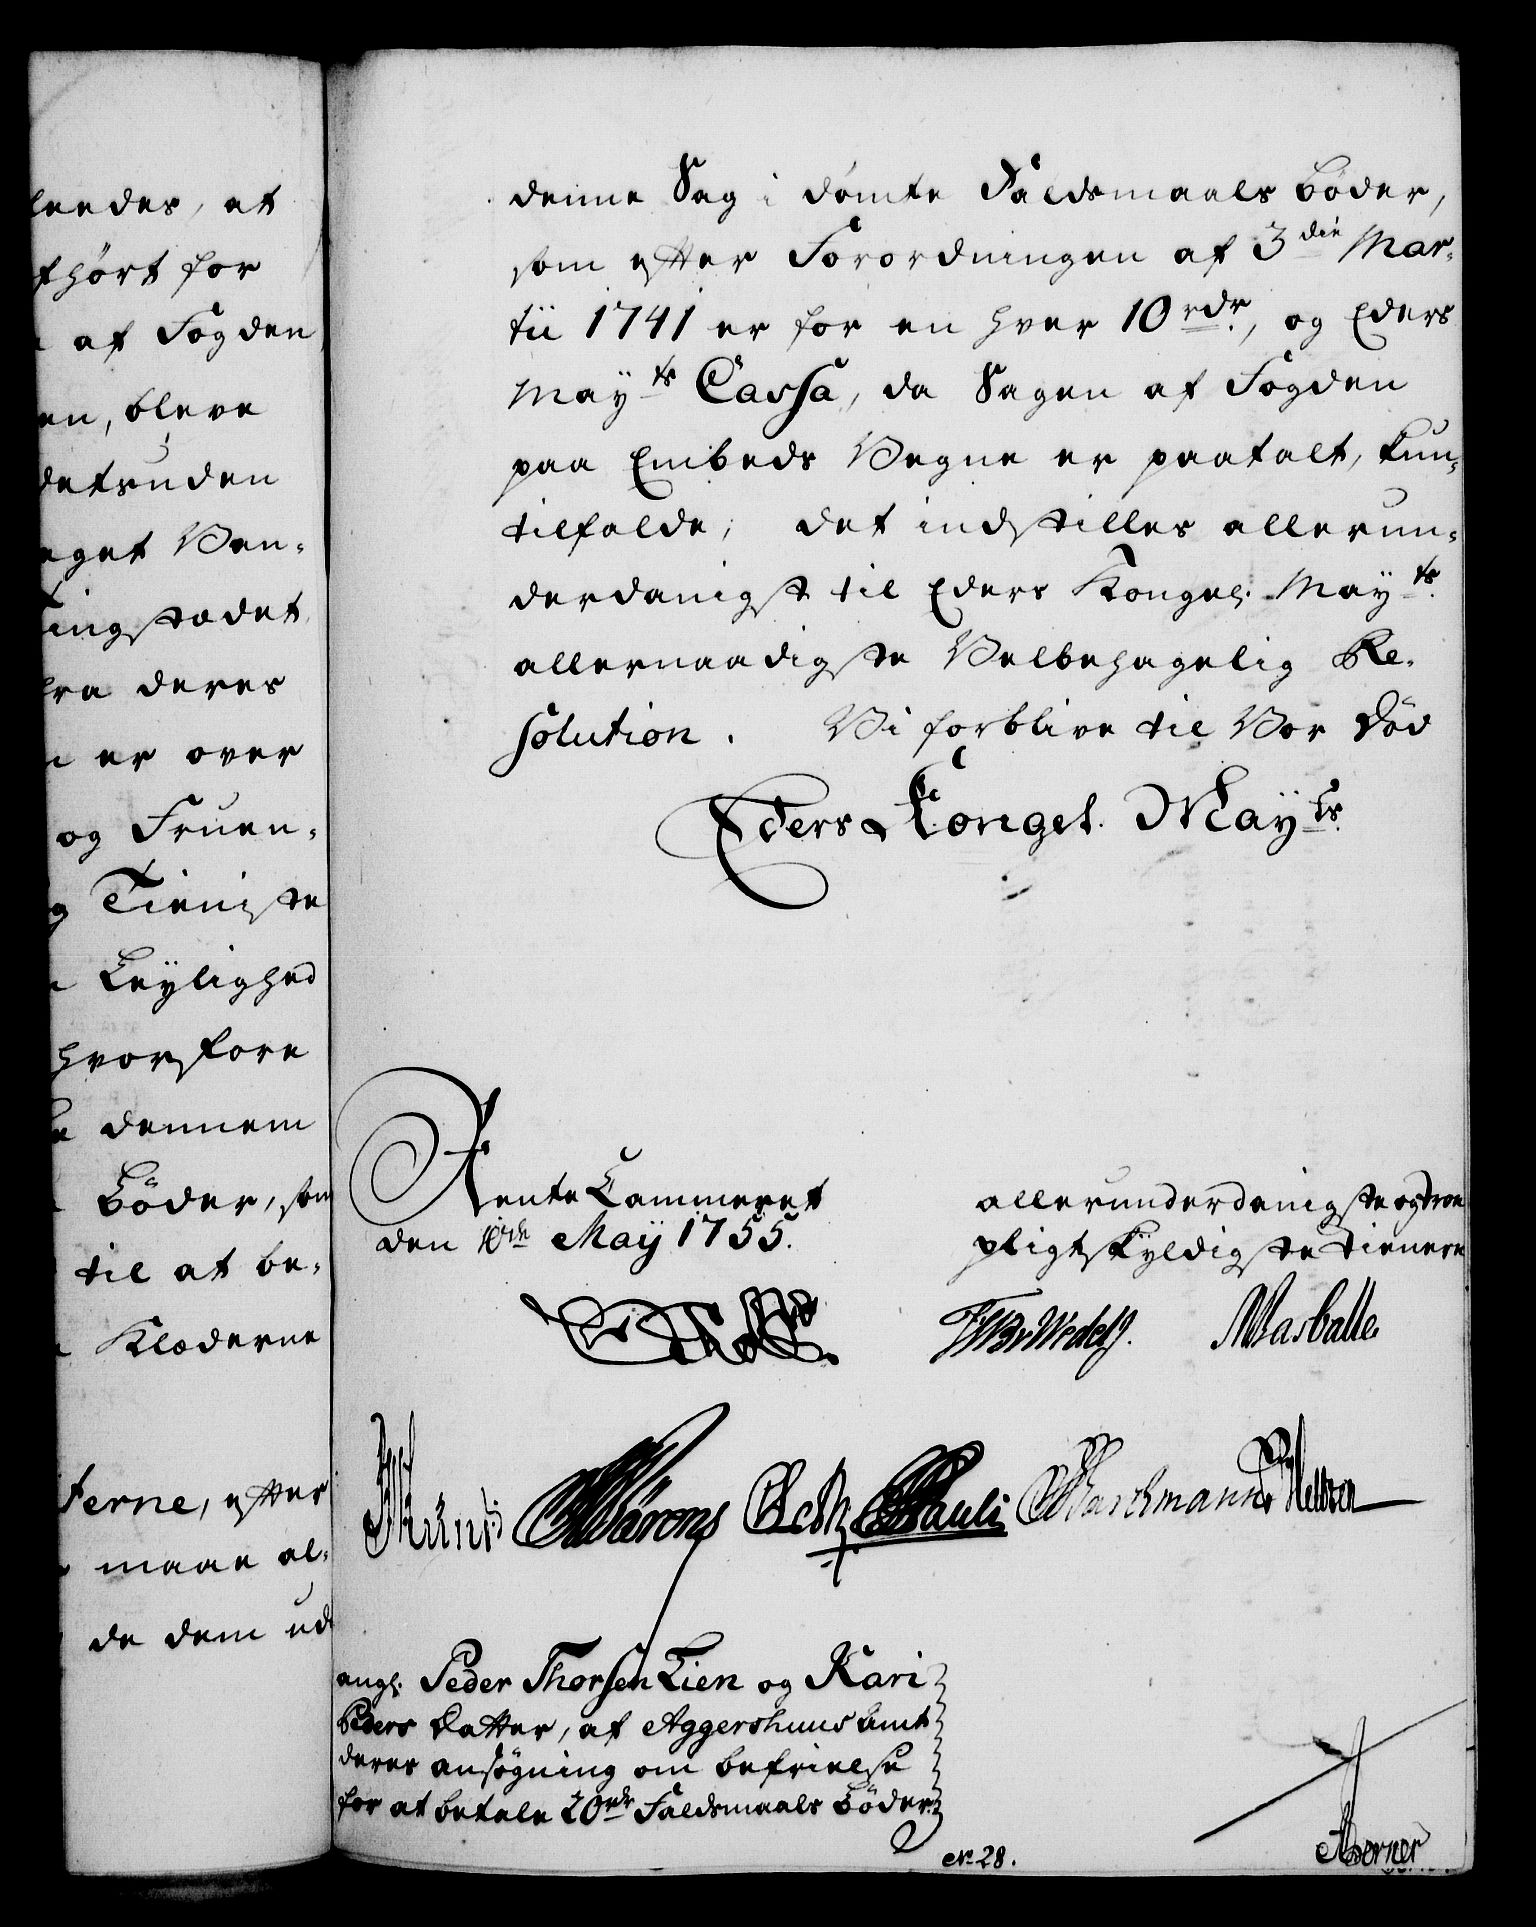 leedes, at
hørt for
af Fogden
en, bleve
detsuden
eget Ven-
ingstædet
fra deres
er over
og Fruen-
Tieniste
Leylighed
hvorfore
dennem
Bøder, som
til at be-
Klæderne
ferne, efter
maae al-
de dem ud
denne Sag i dømte Faldsmaals Bøder,
som efter Forordningen af 3die Mar-
tii 1741 er for en hver 10 rdr, og Eders
Mayts Cassa, da Sagen af Fogden
paa Embeds Vegne er paatalt, kun-
tilfalde; det indstilles allerun-
derdanigst til Eders Kongel. Mayts
allernaadigste Velbehagelig Re-
solution. Vi forblive til Vor Død
Eders Kongel. Mayts
Rente Cammeret
den 10de Maÿ 1755.
allerunderdanigste og troe
pligtskyldigste Tienere
Pauli
angl. Peder Thorsen Lien og Kari
Peders Datter, af Aggershuus Amt
deres ansøgning om befrielse
for at betale 20 rdr Faldsmaals Bøder
No 28.